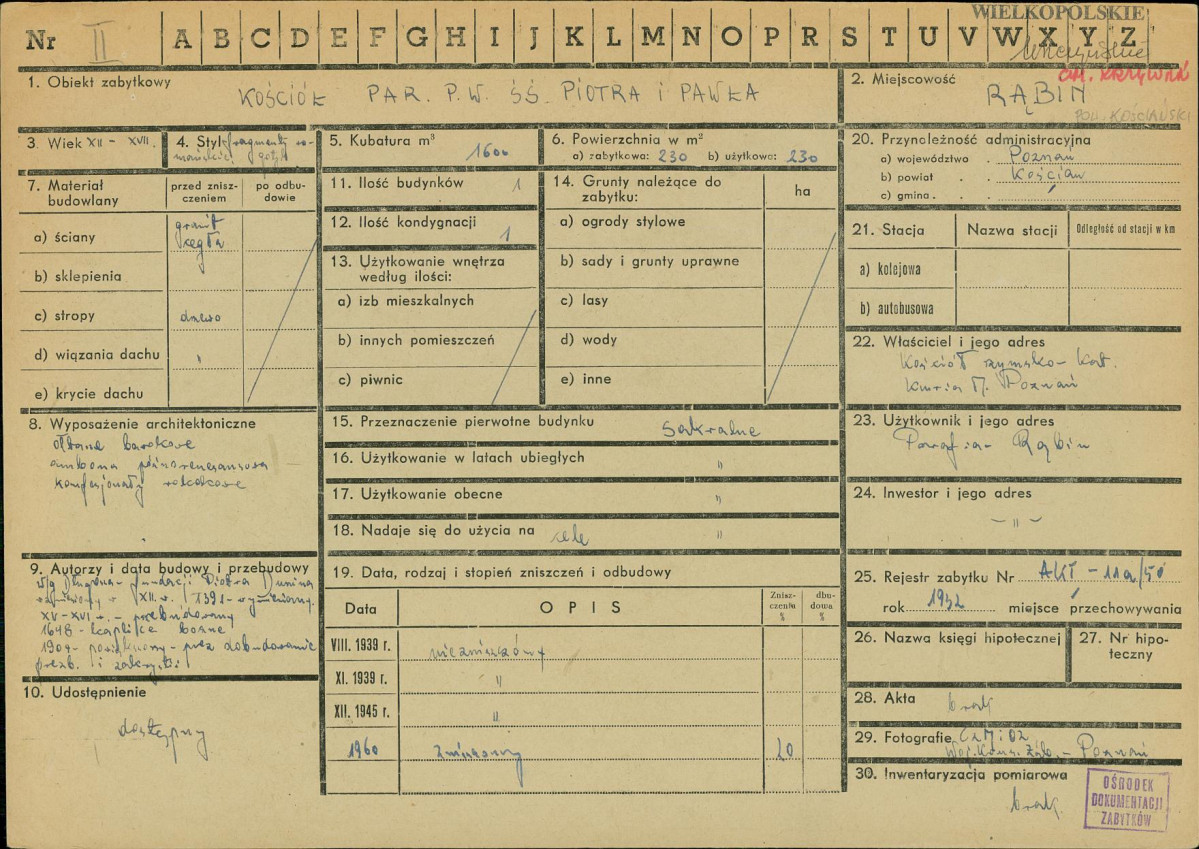 WIELKOPOLSKIE
Nr II A B C D E F G H I J K L M N O P R S T U V W X Y Z
GM. KRZYWIŃ
1. Obiekt zabytkowy
KOŚCIÓŁ PAR. P.W. ŚŚ. PIOTRA i PAWŁA
2. Miejscowość
RĄBIŃ
POW. KOŚCIAŃSKI
3. Wiek XII - XVII
4. Styl fragmenty ro-
mańskie, gotyk
5. Kubatura m³
1600
6. Powierzchnia w m²
a) zabytkowa: 230 b) użytkowa: 230
7. Materiał budowlany
przed znisz-
czeniem
po odbu-
dowie
a) ściany
granit
cegła
b) sklepienia
c) stropy drewo
d) wiązania dachu "
e) krycie dachu
8. Wyposażenie architektoniczne
ołtarze barokowe
ambona późnorenesansowa
konfesjonały rokokowe
9. Autorzy i data budowy i przebudowy
w/g Długosza - fundacji Piotra Dunina
XII. w. 1391 - wymieniony.
XV - XVI w. - przebudowany
1648 - kaplice boczne
1909 - - przez dobudowanie
prezb. i zakrystii
10. Udostępnienie
dostępny
11. Ilość budynków 1
12. Ilość kondygnacji 1
13. Użytkowanie wnętrza
według ilości:
a) izb mieszkalnych
b) innych pomieszczeń
c) piwnic
14. Grunty należące do
zabytku:
ha
a) ogrody stylowe
b) sady i grunty uprawne
c) lasy
d) wody
e) inne
15. Przeznaczenie pierwotne budynku sakralne
16. Użytkowanie w latach ubiegłych "
17. Użytkowanie obecne "
18. Nadaje się do użycia na cele "
19. Data, rodzaj i stopień zniszczeń i odbudowy
Data
OPIS
Znisz-
czenia
%
dbu-
dowa
%
VIII. 1939 r. niezniszczony
XI. 1939 r. "
XII. 1945 r. "
1960 zniszczony 20
20. Przynależność administracyjna
a) województwo Poznań
b) powiat Kościan
c) gmina
21. Stacja
Nazwa stacji
Odległość od stacji w km
a) kolejowa
b) autobusowa
22. Właściciel i jego adres
Kościół rzymsko-kat.
Kuria M. Poznań
23. Użytkownik i jego adres
Parafia - Rąbiń
24. Inwestor i jego adres
- " -
25. Rejestr zabytku Nr AKT - 11a/50
rok 1932 miejsce przechowywania
26. Nazwa księgi hipotecznej
27. Nr hipo-
teczny
28. Akta
brak
29. Fotografie CZMiOZ
Woj. Kons. Zab. - Poznań
30. Inwentaryzacja pomiarowa
brak
OŚRODEK
DOKUMENTACJI
ZABYTKÓW